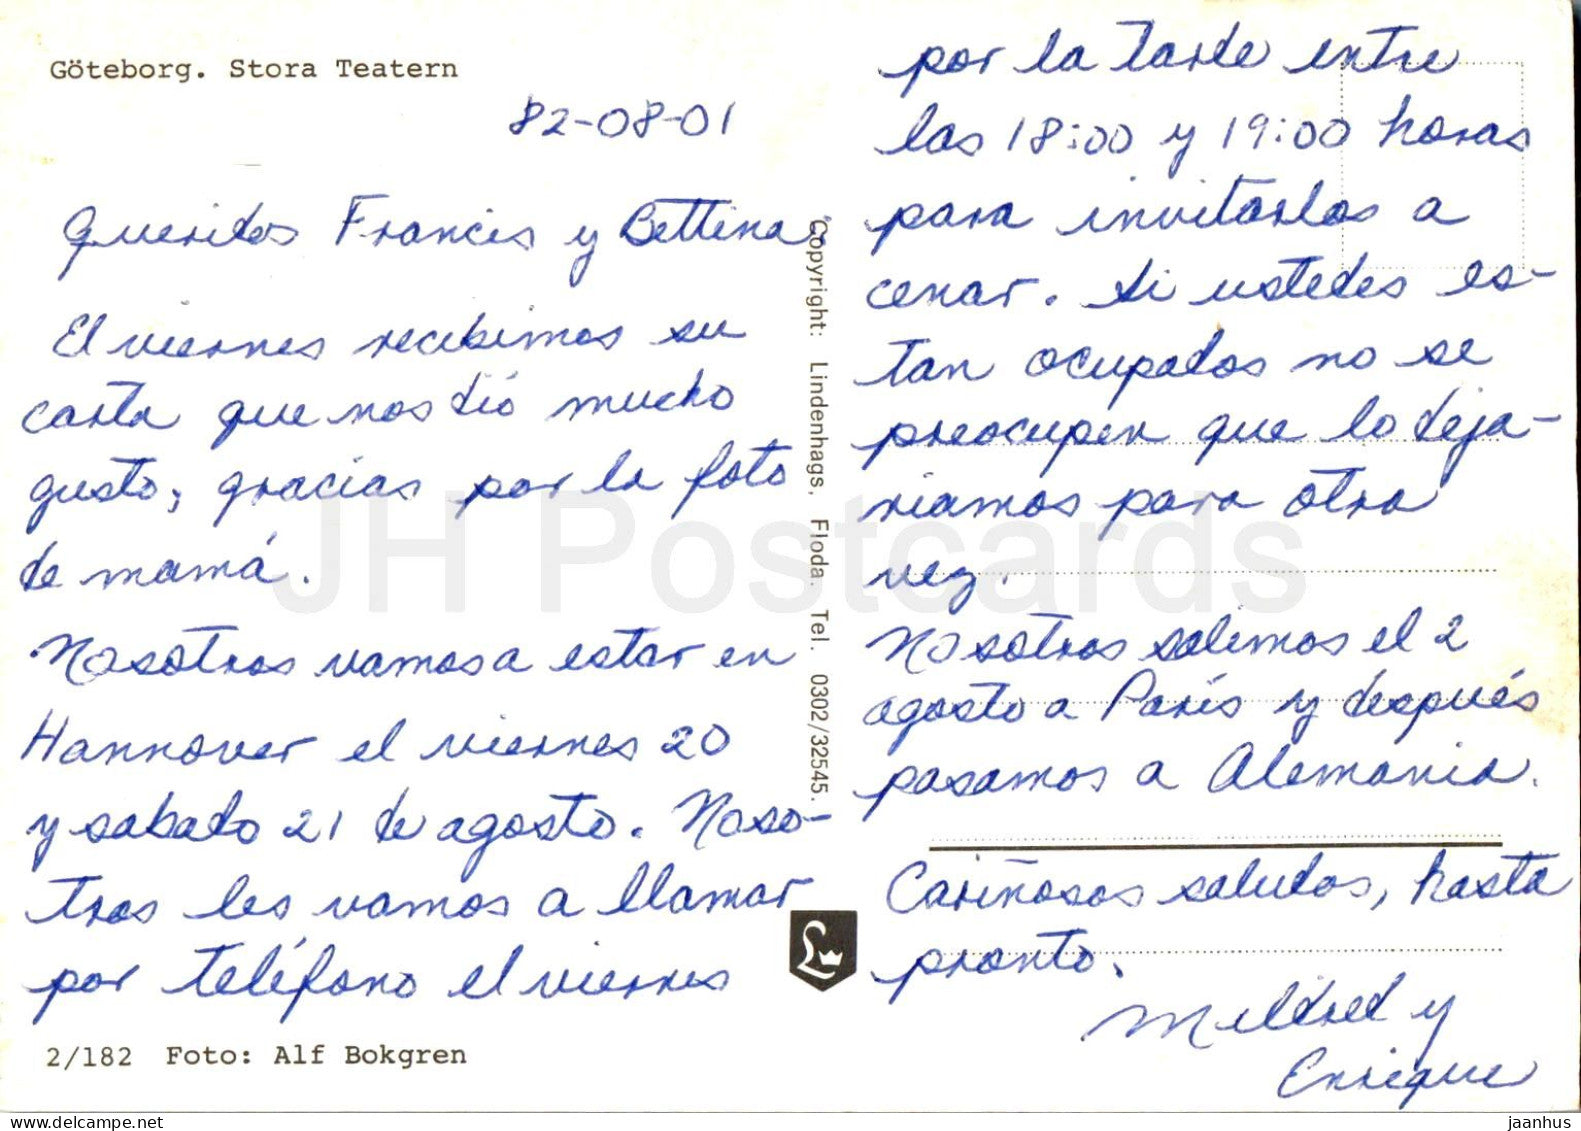 Göteborg. Stora Teatern
82-08-01
Queridos Francis y Bettina,
El viernes recibimos su
carta que nos dió mucho
gusto, gracias por la foto
de mamá.
Nosotros vamos a estar en
Hannover el viernes 20
y sabado 21 de agosto. Noso-
tros les vamos a llamar
por teléfono el viernes
2/182 Foto: Alf Bokgren
Copyright: Lindenhags, Floda. Tel. 0302/32545.
L
por la tarde entre
las 18:00 y 19:00 horas
para invitarlos a
cenar. Si ustedes es-
tan ocupados no se
preocupen que lo deja-
riamos para otra
vez.
Nosotros salimos el 2
agosto a París y después
pasamos a Alemania.
Cariñosos saludos, hasta
pronto.
Mildred y
Enrique
JH Postcards
www.delcampe.net
jaanhus